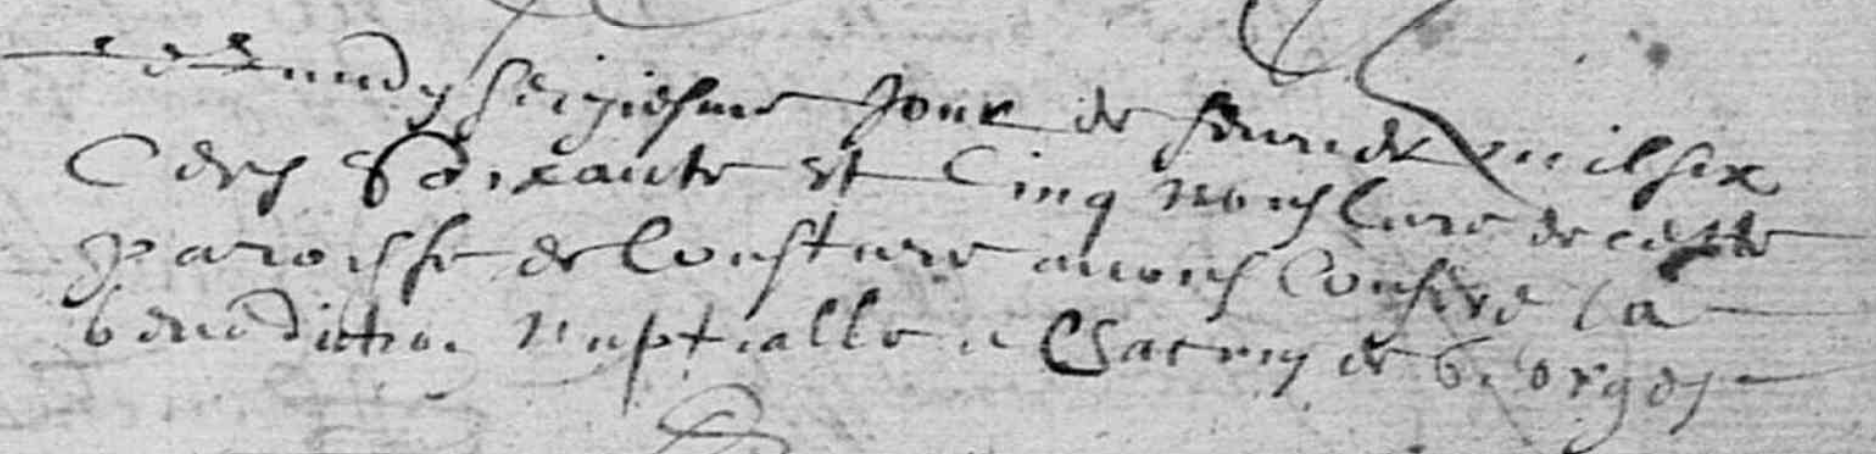 Le Lundy seiziesme Jour de febvrier mil six
Cens Soixante et Cinq nous Curé de cette
paroisse de Cousture avons Conferé la
benediction Nuptialle a de Georges